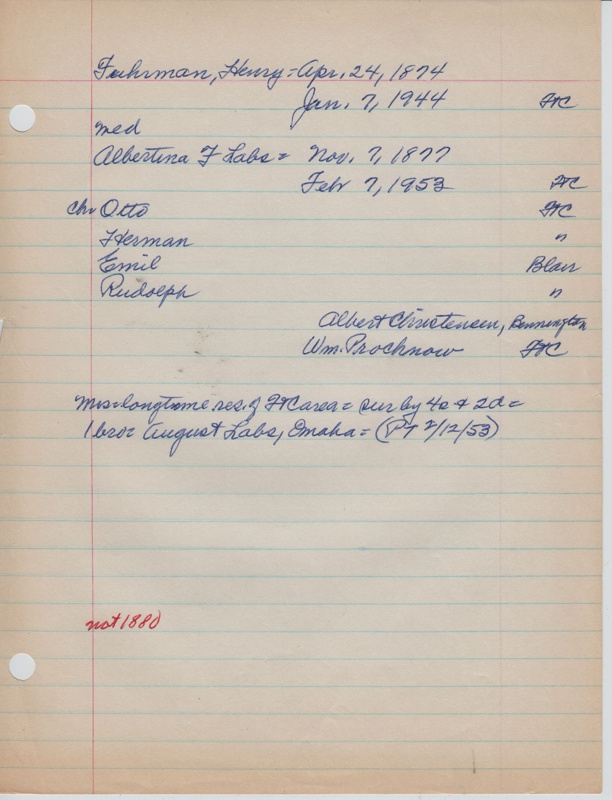 Fuhrman, Henry = Apr. 24, 1874
Jan. 7, 1944 FTC
med
Albertina F Labs = Nov. 7, 1877
Feb 7, 1953 FTC
ch: Otto FTC
Herman "
Emil Blair
Rudolph "
Albert Christensen, Bennington
Wm. Prochnow FTC
Mrs = longtime res. of FTC area = sur by 4s & 2d =
1 bro: August Labs, Omaha = (PT 2/12/53)
not 1880